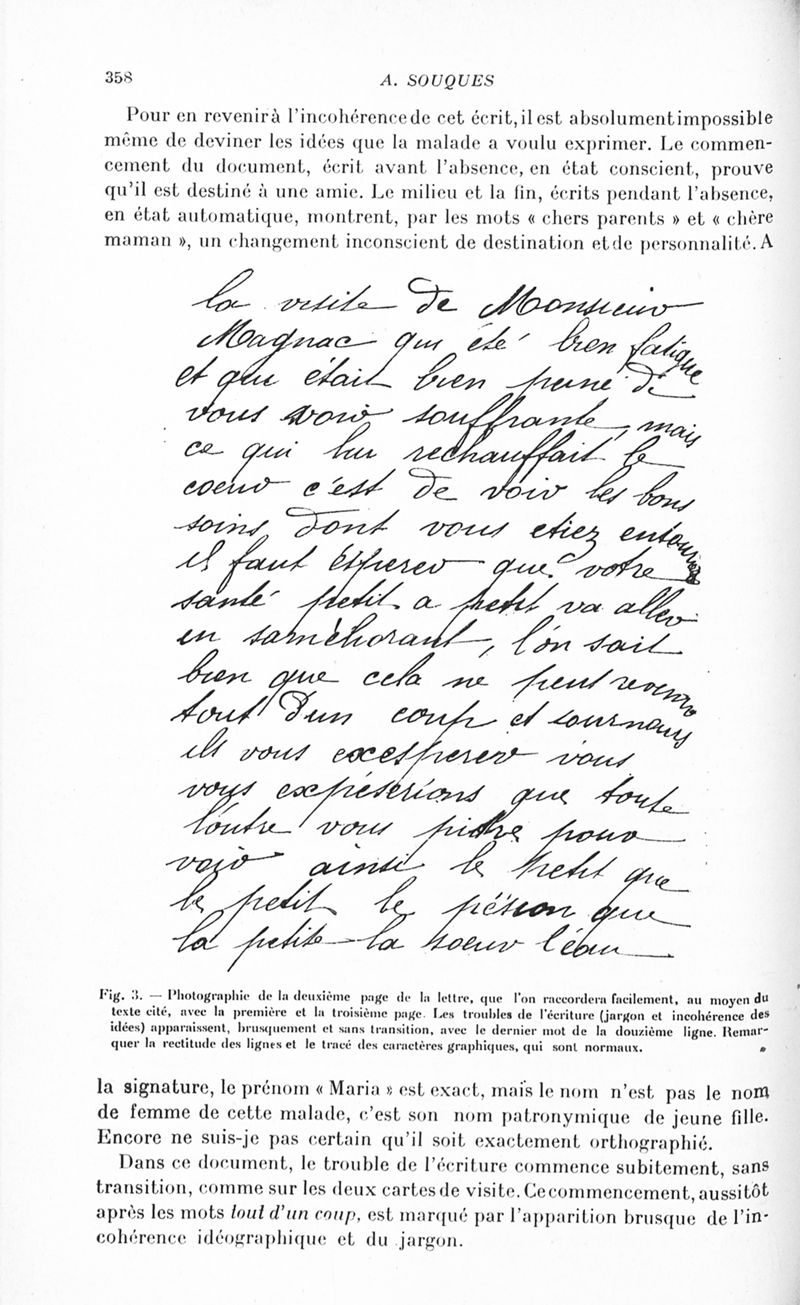 358
A. SOUQUES
Pour en revenir à l'incohérence de cet écrit, il est absolument impossible
même de deviner les idées que la malade a voulu exprimer. Le commen-
cement du document, écrit avant l'absence, en état conscient, prouve
qu'il est destiné à une amie. Le milieu et la fin, écrits pendant l'absence,
en état automatique, montrent, par les mots « chers parents » et « chère
maman », un changement inconscient de destination et de personnalité. A
la visite de Monsieur
Magnac qui été bien fatigue
et qui était bien peiné de
vous voir souffrante, mais
ce qui lui rechauffait le
coeur c'est de voir les bons
soins dont vous etiez entourée
il faut éspérer que votre
santé petit a petit va aller
en saméliorant, l'on sait
bien que cela ne peut revenir
tout d'un coup et
ils vous vous
vous que toute
vous pour
voir ainsi le petit que
le petit le que
la petite la soeur l'eau
Fig. 3. — Photographie de la deuxième page de la lettre, que l'on raccordera facilement, au moyen du
texte cité, avec la première et la troisième page. Les troubles de l'écriture (jargon et incohérence des
idées) apparaissent, brusquement et sans transition, avec le dernier mot de la douzième ligne. Remar-
quer la rectitude des lignes et le tracé des caractères graphiques, qui sont normaux.
la signature, le prénom « Maria » est exact, mais le nom n'est pas le nom
de femme de cette malade, c'est son nom patronymique de jeune fille.
Encore ne suis-je pas certain qu'il soit exactement orthographié.
Dans ce document, le trouble de l'écriture commence subitement, sans
transition, comme sur les deux cartes de visite. Ce commencement, aussitôt
après les mots tout d'un coup, est marqué par l'apparition brusque de l'in-
cohérence idéographique et du jargon.